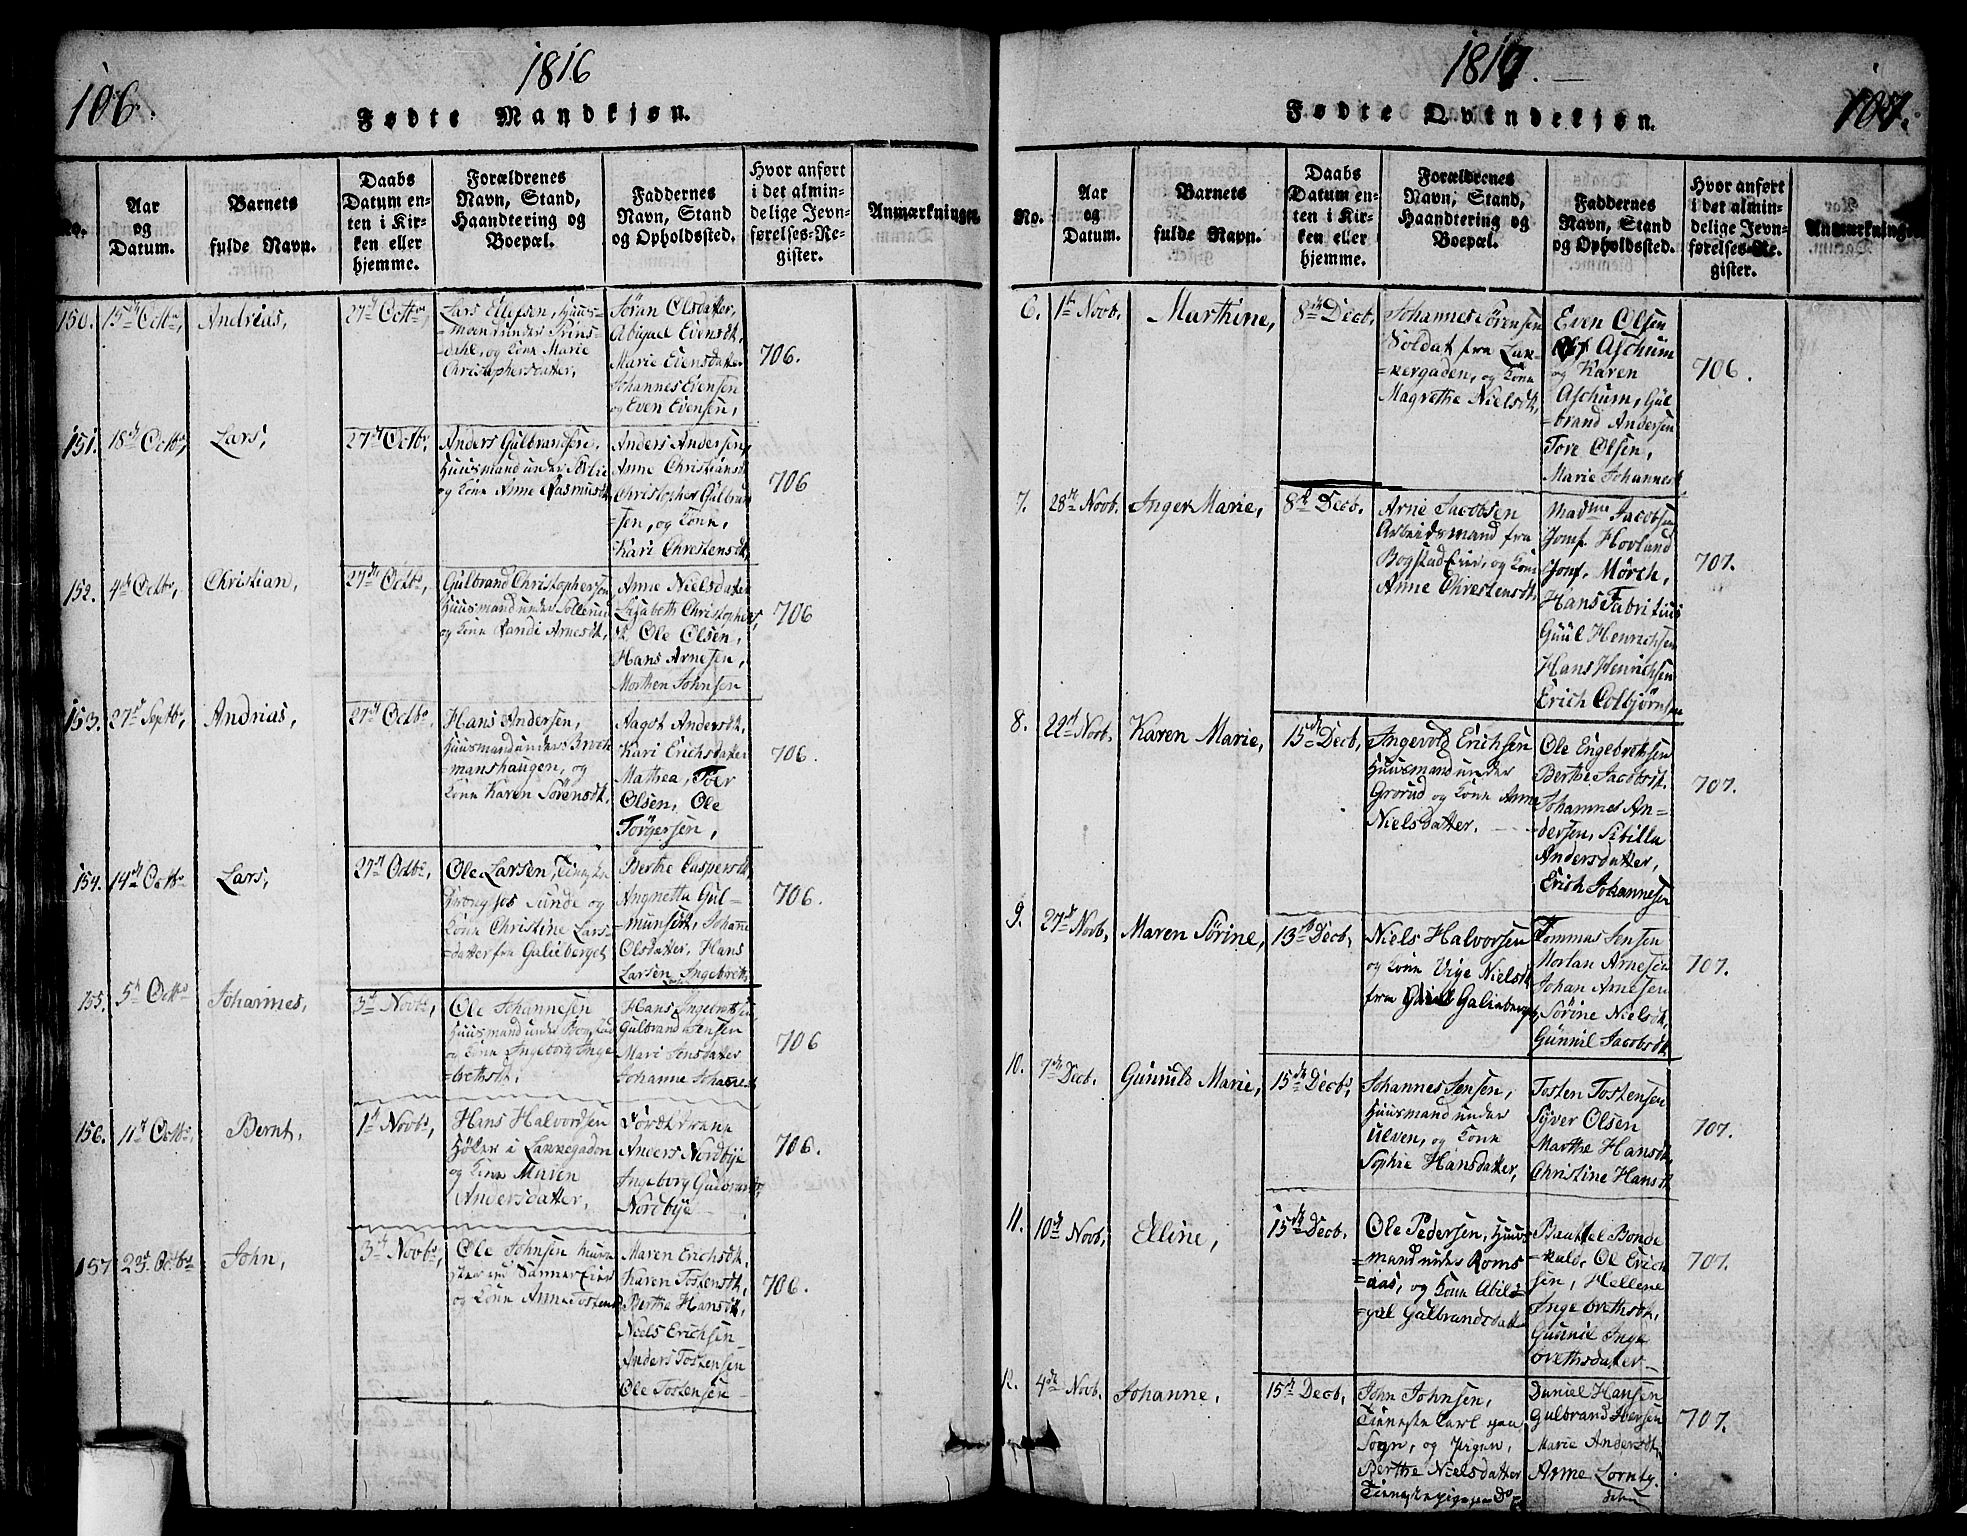 106.
1816
Fødte Mandkjøn.
No.
Aar
og
Datum.
Barnets
fulde Navn.
Daabs
Datum en-
ten i Kir-
ken eller
hjemme.
Forældrenes
Navn, Stand,
Haandtering og
Boepæl.
Faddernes
Navn, Stand
og Opholdssted.
Hvor anført
i det almin-
delige Jevn-
førelses-Re-
gister.
Anmærkninger.
150.
15de Octbr,
Andrias,
27de Octbr,
Lars Ellefsen, Huus-
mand under Prins-
dahl, og Kone Marie
Christophersdatter,
Søran Olsdatter,
Abigael Evensdt,
Marie Evensdatter
Johannes Evensen
og Even Evensen,
706.
151.
18de Octbr,
Lars,
27de Octbr,
Anders Gulbrandsen,
Huusmand under
og Kone Anne Rasmusdt,
Anders Andersen,
Anne Christiansdt
Christopher Gulbrand
-sen, og Kone,
Kari Christensdt,
706
152.
4de Octbr,
Christian,
27de Octbr,
Gulbrand Christophersen
Huusmand under Sollerud
og Kone Randi Arnesdt,
Anne Nielsdatter
Lisabeth Christophers
dt, Ole Olsen,
Hans Arnesen,
Morthen Johnsen
706
153.
27de Septbr,
Andrias,
27de Octbr,
Hans Andersen,
Huusmand under Broch
manshaugen, og
Kone Karen Sørensdt,
Aagot Andersdt,
Kari Erichsdatter
Mathea, Toer
Olsen, Ole
Torgersen,
706.
154.
14de Octbr
Lars,
27de Octbr,
Ole Larsen,
Sunde og
Kone Christine Lars-
datter fra Galieberget
Berthe Caspersdt,
Angnetta Gul-
munsdt, Johanne
Olsdatter, Hans
Larsen, Ingebreth
706.
155.
5te Octbr
Johannes,
3de Novbr,
Ole Johannesen
Huusmand under Bogstad
og Kone Ingeborg Inge
-brethsdt.
Hans Ingebrethsen
Gulbrand Jensen
Mari Jensdatter
Johanne Johannesdt
706
156.
11te Octbr,
Bernt,
1te Novbr,
Hans Halvordsen
Høker i Lakkegaden
og Kone Maren
Andersdatter,
Anders Nordbye
Ingeborg Gulbrands
Nordbye
706.
157
23de Octbr
John,
3de Novbr,
Ole Johnsen
og Kone Anne Tostens
Maren Erichsdt,
Karen Tostensdt,
Berthe Hansdt,
Niels Erichsen
Anders Tostensen
Ole Tostensen
706.
1816.
107.
Fødte Qvindekjøn.
No.
Aar
og
Datum.
Barnets
fulde Navn.
Daabs
Datum en-
ten i Kir-
ken eller
hjemme.
Forældrenes
Navn, Stand,
Haandtering og
Boepæl.
Faddernes
Navn, Stand
og Opholdssted.
Hvor anført
i det almin-
delige Jevn-
førelses-Re-
gister.
Anmærkninger
6.
1te Novb.
Marthine,
8de Decb,
Johannes Sørensen
Soldat fra Lak-
kergaden, og Kone
Magrethe Nielsdt,
Even Olsen
Aschum
og Karen
Aschum, Gul
brand Andersen
Tore Olsen,
Marie Johannesdt
706.
7.
28de Novb.
Inger Marie,
8de Decb.
Arne Jacobsen
Arbeidsmand fra
Bogstad Eier, og Kone
Anne Christensdt,
Madme Jacobsen
Jomf. Hovland
Jomf. Mörch,
Hans Fabritius
Guul Henrichsen
Hans Henrichsen
Erich Colbjørnsen
707.
8.
22de Novb.
Karen Marie,
15de Decb,
Ingevold Erichsen
Huusmand under
Grorud og Kone Anne
Nielsdatter.
Ole Engebrethsen
Berthe Jacobsdt.
Johannes An-
dersen, Sibilla
Andersdatter,
Erich Johannesen
707.
9.
27de Novb,
Maren Sörine,
13de Decb,
Niels Halvorsen
og Kone Vige Nielsdt
fra Galieberget,
Tommas Jensen
Arnesen
Johan Arnesen
Sørine Nielsdt,
Gunnil Jacobsdt
707.
10.
7de Decb.
Gunnild Marie,
15de Decbr,
Johannes Jensen,
Huusmand under
Ulven, og Kone
Sophie Hansdatter,
Tosten Tostensen
Syver Olsen
Marthe Hansdt,
Christine Hansdt
707.
11.
10de Novb,
Elline,
15de Decb.
Ole Pedersen, Huus
mand under Roms
-aas, og Kone Abi-
-gal Gulbrandsdatter
Bonde
Ole Erich
sen, Hellene
Ingebrethsdt,
Gunnil Inge
brethsdatter
707.
12.
4de Novb.
Johanne,
15de Decb,
John Johnsen,
Tieneste Karl paa
Sogn, og Pigen,
Berthe Nielsdatter
Tienestepige paa Do
Daniel Hansen
Gulbrand Iversen
Marie Andersdt,
Anne
707.